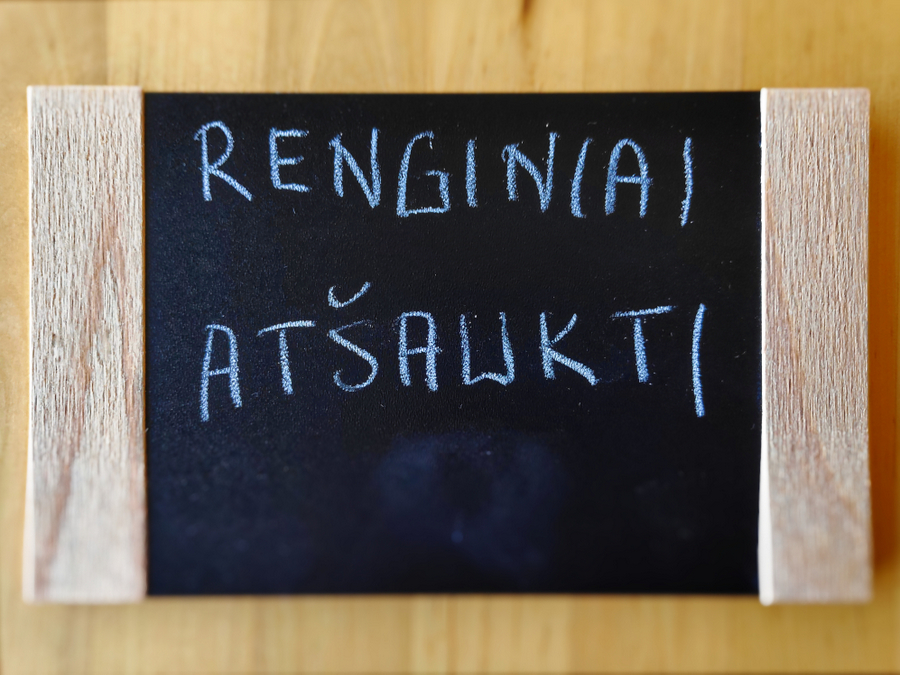 RENGINIAI
ATŠAUKTI